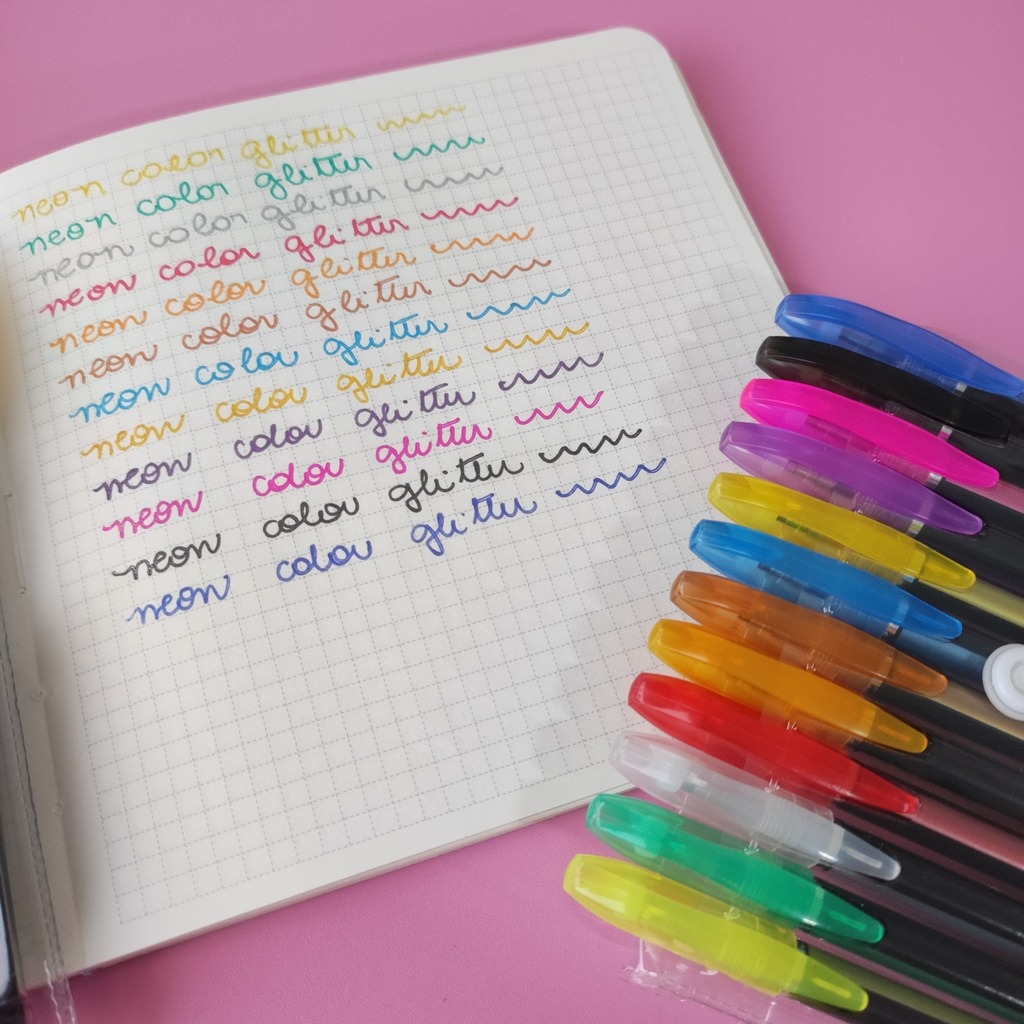 neon color glitter
neon color glitter
neon color glitter
neon color glitter
neon color glitter
neon color glitter
neon color glitter
neon color glitter
neon color glitter
neon color glitter
neon color glitter
neon color glitter